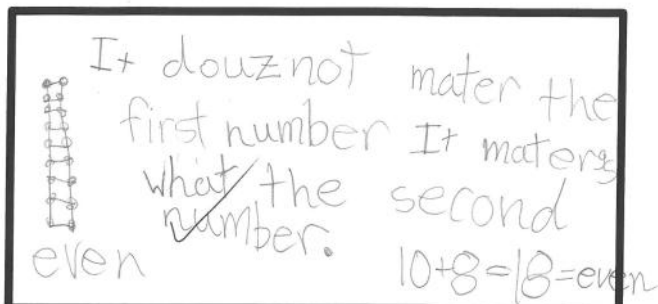 It douz not mater the
first number It maters
what the second
number.
even
10+8=18=even